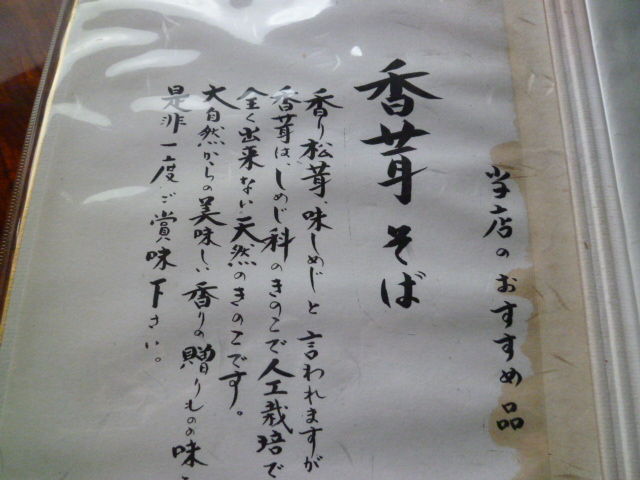 当店のおすすめ品
香茸そば
香り松茸、味しめじと言われますが
香茸は、しめじ科のきのこで人工栽培で
全く出来ない天然のきのこです。
大自然からの美味しい香りの贈りものの味
是非一度ご賞味下さい。